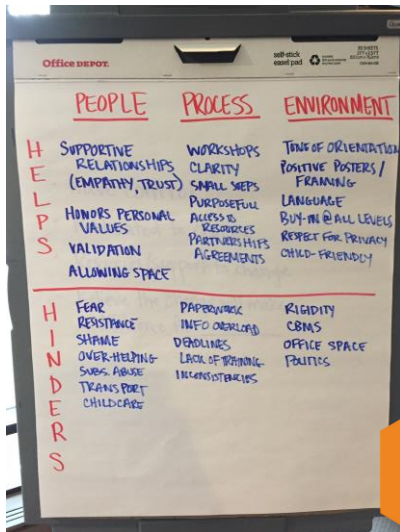 Office DEPOT.
self-stick
easel pad
PEOPLE PROCESS ENVIRONMENT
HELPS
SUPPORTIVE
RELATIONSHIPS
(EMPATHY, TRUST)
HONORS PERSONAL
VALUES
VALIDATION
ALLOWING SPACE
WORKSHOPS
CLARITY
SMALL STEPS
PURPOSEFULL
ACCESS TO
RESOURCES
PARTNERSHIPS
AGREEMENTS
TONE OF ORIENTATION
POSITIVE POSTERS /
FRAMING
LANGUAGE
BUY-IN @ ALL LEVELS
RESPECT FOR PRIVACY
CHILD-FRIENDLY
HINDERS
FEAR
RESISTANCE
SHAME
OVER-HELPING
SUBS. ABUSE
TRANSPORT
CHILDCARE
PAPERWORK
INFO OVERLOAD
DEADLINES
LACK OF TRAINING
INCONSISTENCIES
RIGIDITY
CBMS
OFFICE SPACE
POLITICS